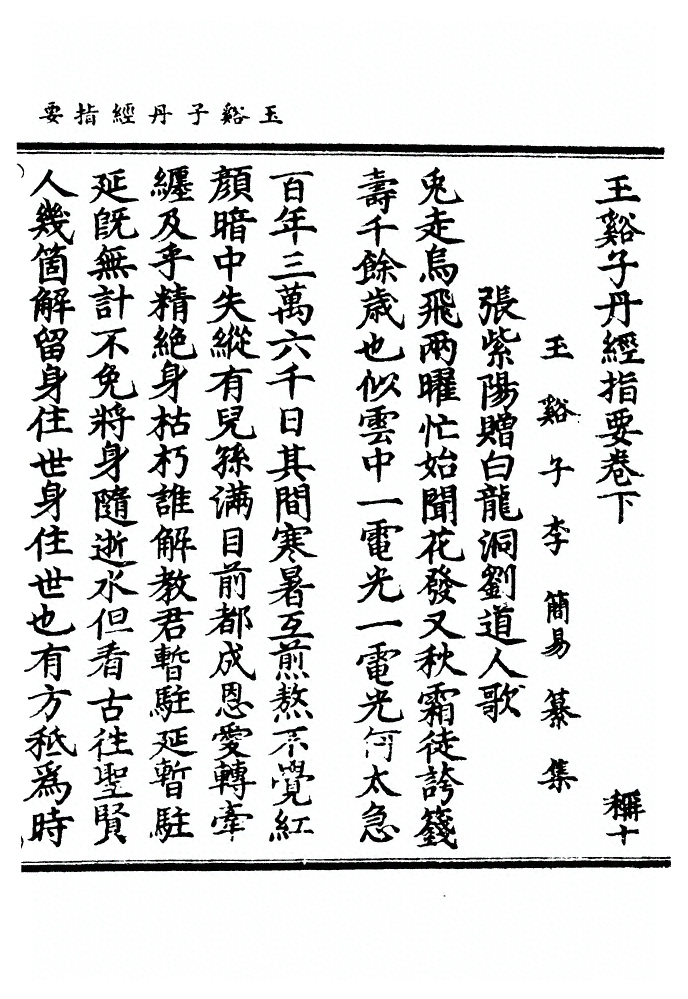 玉谿子丹經指要
玉谿子丹經指要卷下
稱十
玉谿子李簡易纂集
張紫陽贈白龍洞劉道人歌
兎走烏飛兩曜忙始聞花發又秋霜徒誇籛
壽千餘歲也似雲中一電光一電光何太急
百年三萬六千日其間寒暑互煎熬不覺紅
顔暗中失縱有兒孫滿目前都成恩愛轉牽
纏及乎精絶身枯朽誰解教君暫駐延暫駐
延旣無計不免將身隨逝水但看古往聖賢
人幾箇解留身住世身住世也有方秪爲時